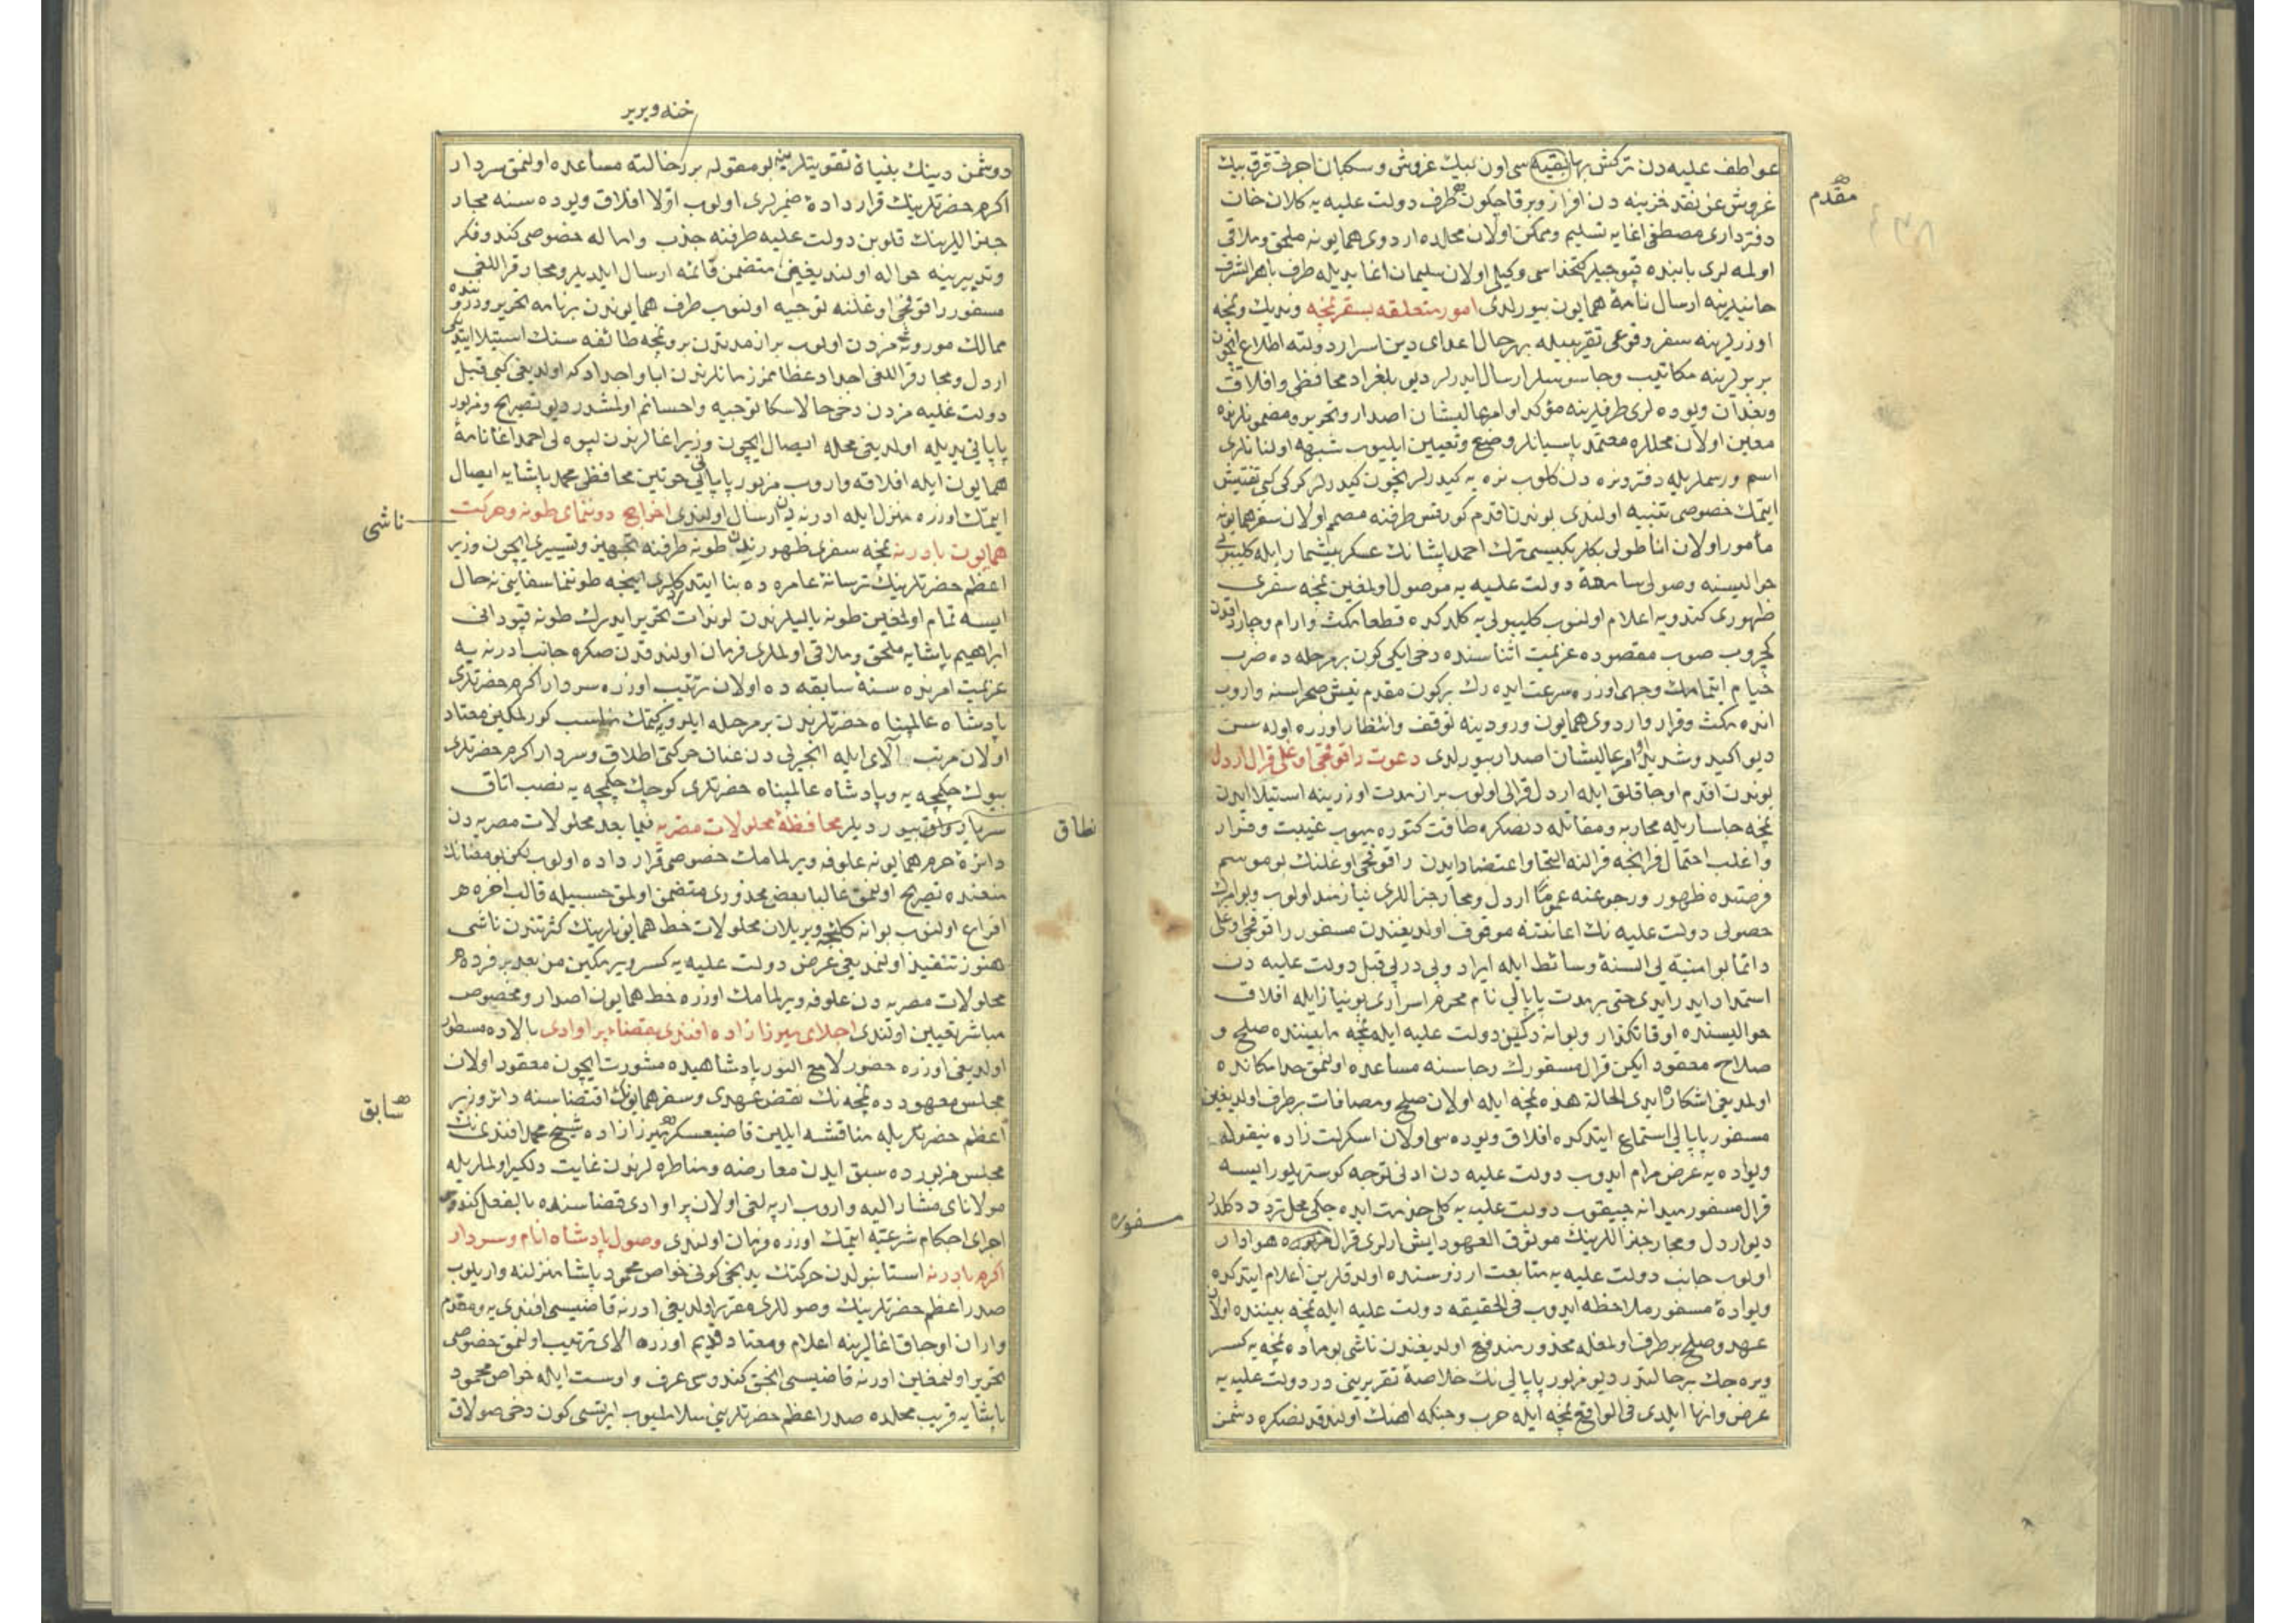 عواطف عليه دن تركش بها بقيه سى اون بيك غروش و سكبان اجرتى قرق بيك
مقدم
غروش عن نقد خزينه دن افراز وبر قاچ كون طرف دولت عليه يه كلان خان
دفتردارى مصطفى اغايه تسليم وممكن اولان محلده اردوى همايونه ملحق وملاقى
اولمه لرى بابنده قپوجيلر كتخداسى وكيلى اولان سليمان اغا يديله طرف باهر الشرف
خانيلرينه ارسال نامۀ همايون بيورلدى امور متعلقه بسفر نمچه ونديك ونمچه
اوزرلرينه سفر وقوعى تقريبيله بهرحال اعداى دين اسرار دولته اطلاع ايچون
بربرلرينه مكاتيب وجاسوسلر ارسال ايدرلر ديو بلغراد محافظى وافلاق
وبغدان ويوده لرى طرفلرينه مؤكد اوامر عاليشان اصدار وتحرير ومضمونلرنده
معين اولان محللره معتمد پاسبانلر وضع وتعيين ايليوب شبهه اولنانلرى
اسم ورسملريله دفتر ونره دن كلوب نره يه كيدرلر نيچون كيدرلر كركى كبى تفتيش
ايتمك خصوصى تنبيه اولندى بوندن اقدم كورفس طرفنه مصمم اولان سفر همايونه
مأمور اولان اناطولى بكلربكيسى ترك احمد پاشانك عسكر بيشمار ايله كليبولى
حواليسنه وصولى سامعۀ دولت عليه يه موصول اولمغين نمچه سفرى
ظهورى كندويه اعلام اولنوب كليبولى يه كلدكده قطعا مكث وارام وچارداقدن
كچروب صوب مقصوده عزيمت اثناسنده دخى ايكى كون بر مرحله ده ضرب
خيام ايتمامك وجهى اوزره سرعت ايده رك بر كون مقدم نيش صحراسنه واروب
انده مكث وقرار واردوى همايون ورودينه توقف وانتظار اوزره اوله سن
ديو اكيد وشديد امر عاليشان اصدار بيورلدى دعوت راقوفچى اوغلى قرال اردل
بوندن اقدم اوجاقلق ايله اردل قرالى اولوب بر از مدت اوزرينه استيلا ايدن
نمچه چاسار يله محاربه ومقاتله دنصكره طاقت كتوره ميوب غيبت وفرار
واغلب احتمال فرانچه قرالنه التجا واعتضاد ايدن راقوفچى اوغلنك بو موسم
فرصتده ظهور ورجوعنه عموما اردل ومجار جنراللرى نيازمند اولوب وبو امرك
حصولى دولت عليه نك اعانتنه موقوف اولديغندن مسفور راقوفچى اوغلى
دائما بو امنيه لى السنۀ وسائط ايله ايراد وپى درپى قبل دولت عليه دن
استمداد ايدر ايدى حتى بر مدت پاپاى نام محرم اسرارى بو نياز ايله افلاق
حواليسنده اوقاتكذار وبو انه دكين دولت عليه ايله نمچه مابيننده صلح و
صلاح معقود ايكن قرال مسفورك رجاسنه مساعده اولنمق حد امكانده
اولمديغى اشكار ايدى الحالة هذه نمچه ايله اولان صلح ومصافات بر طرف اولديغين
مسفور پاپاى استماع ايتدكده افلاق ويوده سى اولان اسكرلت زاده نيقوله
ويواده يه عرض مرام ايدوب دولت عليه دن ادنى توجه كوستريلور ايسه
قرال مسفور ميدانه چيقوب دولت عليه يه كلى خدمت ايده جكى محل تردد دكلدر
مسفوره
ديو اردل ومجار جنراللرينك موثوق العهود ايش ارلرى قرال مزبوره هوادار
اولوب جانب دولت عليه يه متابعت ارزوسنده اولدقلرين اعلام ايتدكده
ويوادۀ مسفور ملاحظه ايدوب فى الحقيقه دولت عليه ايله نمچه بيننده اولان
عهد وصلح بر طرف اولمغله محذور مندفع اولديغندن ناشى بو ماده نمچه يه كسر
ويره جك بر حالتدر ديو مزبور پاپاى نك خلاصۀ تقريرينى در دولت عليه يه
عرض وانها ايلدى فى الواقع نمچه ايله حرب وجنكه اهنك اولندقدنصكره دشمن
خنه ويرير
دوشمن دينك بنياد تقويتلرينه بو مقوله بر رخالته مساعده اولنمق سردار
اكرم حضرتلرينك قرار دادۀ ضميرلرى اولوب اولا افلاق ويوده سنه مجار
جنراللرينك قلوبن دولت عليه طرفنه جذب واماله خصوصى كندو فكر
وتدبيرينه حواله اولنديغنى متضمن قائمه ارسال ايلديلر ومجار قراللغى
مسفور راقوفچى اوغلنه توجيه اولنوب طرف همايوندن بر نامه تحرير ودرونده
ممالك موروثه مزدن اولوب بر از مدتدن برو نمچه طائفه سنك استيلا ايتديكى
اردل ومجار قراللغى اجداد عظاممز زمانلرندن ابا واجدادكه اولديغى كبى قبل
دولت عليه مزدن دخى حالا سكا توجيه واحسانم اولمشدر ديو تصريح ومزبور
پاپاى يديله اولديغى محله ايصال ايچون وزير اغالرندن ليوه لى احمد اغا نامۀ
همايون ايله افلاقه واروب مزبور پاپاى خوتين محافظى محمد پاشايه ايصال
ايتمك اوزره منزل ايله ادرنه دن ارسال اولندى اخراج دوننماى طونه وحركت
ناشى
همايون بادرنه نمچه سفرى ظهورندن طونه طرفنه تجهيز وتسييرى ايچون وزير
اعظم حضرتلرينك ترسانۀ عامره ده بنا ايتدكلرى اينجه طوننما سفاينى نه حال
ايسه تمام اولمغين طونه ياليلرندن لوندات تحرير ايدرك طونه قپودانى
ابراهيم پاشايه ملحق وملاقى اولملرى فرمان اولندقدن صكره جانب ادرنه يه
عزيمت امرنده سنۀ سابقه ده اولان ترتيب اوزره سردار اكرم حضرتلرى
پادشاه عالمپناه حضرتلرندن بر مرحله ايلرو كيتمك مناسب كورلمكين معتاد
اولان مرتب آلاى ايله انجيرلى دن عنان حركتى اطلاق وسردار اكرم حضرتلرى
بيوك چكمجه يه وپادشاه عالمپناه حضرتلرى كوچك چكمجه يه نصب اتاق
نطاق
بيورديلر محافظۀ محلولات مصريه فيما بعد محلولات مصريه دن
دائرۀ حرم همايونه علوفه ويرلمامك خصوصى قرار داده اولوب لكن بو معنانك
منعنده تصريح اولنمق غالبا بعض محذورى متضمن اولمق حسبيله قالب اخره
افراغ اولنوب بو انه كلنجه ويريلان محلولات خط همايونلرينك كثرتندن ناشى
هنوز تنفيذ اولنمديغى عرض دولت عليه يه كسر ويرمكين من بعد بر فرده
محلولات مصريه دن علوفه ويرلمامك اوزره خط همايون اصدار ومخصوص
مباشر تعيين اولندى اجلاى ميرزا زاده افندى بقضاء پراوادى بالاده مسطور
اولديغى اوزره حضور لامع النور پادشاهيده مشورت ايچون معقود اولان
سابق
مجلس معهودده نمچه نك نقض عهدى وسفر همايونك اقتضاسنه دائر وزير
اعظم حضرتلريله مناقشه ايلين قاضيعسكر ميرزا زاده شيخ محمد افندى نك
مجلس مزبورده سبق ايدن معارضه ومناظره لرندن غايت دلكير اولملريله
مولاناى مشار اليه واروب ارپه لغى اولان پراوادى قضاسنده بالفعل كندو
اجراى احكام شرعيه ايتمك اوزره فرمان اولندى وصول پادشاه انام وسردار
اكرم بادرنه استانبولدن حركتك يدنجى كونى خواص محمود پاشا منزلنه واريلوب
صدر اعظم حضرتلرينك وصوللرى مقرر اولديغى ادرنه قاضيسى افندى يه ومقدم
واران اوجاق اغالرينه اعلام ومعتاد قديم اوزره الاى ترتيب اولنمق خصوصى
تحرير اولنمغين ادرنه قاضيسى انجق كندوسى عرف واوست ايله خواص محمود
پاشايه قريب محلده صدر اعظم حضرتلرينى سلاملييوب ايرتسى كون دخى صولاق